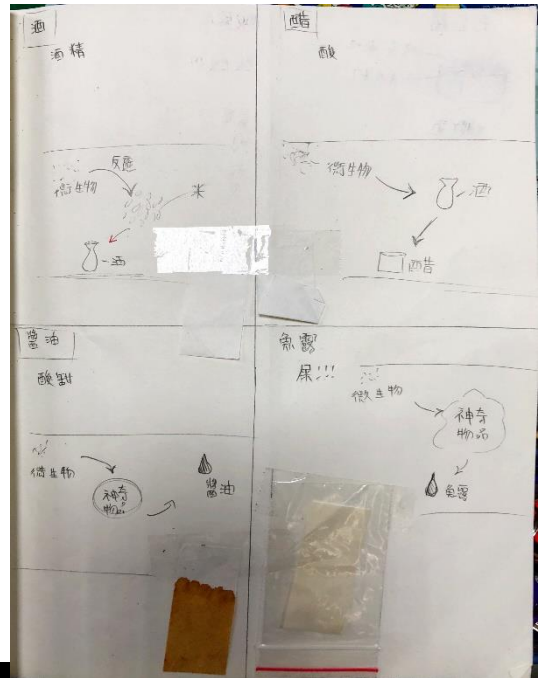 酒
酒精
微生物
反應
米
酒
醋
酸
微生物
酒
醋
醬油
酸甜
微生物
神奇
物品
醬油
魚露
屎!!!
微生物
神奇
物品
魚露